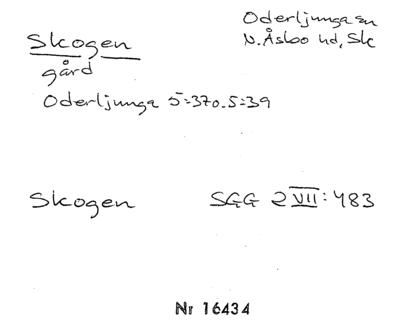 Skogen
Oderljunga sn
N. Åsbo hd, Sk
gård
Oderljunga 5:37o.5:39
Skogen SGG 2 VII: 483
Nr 16434